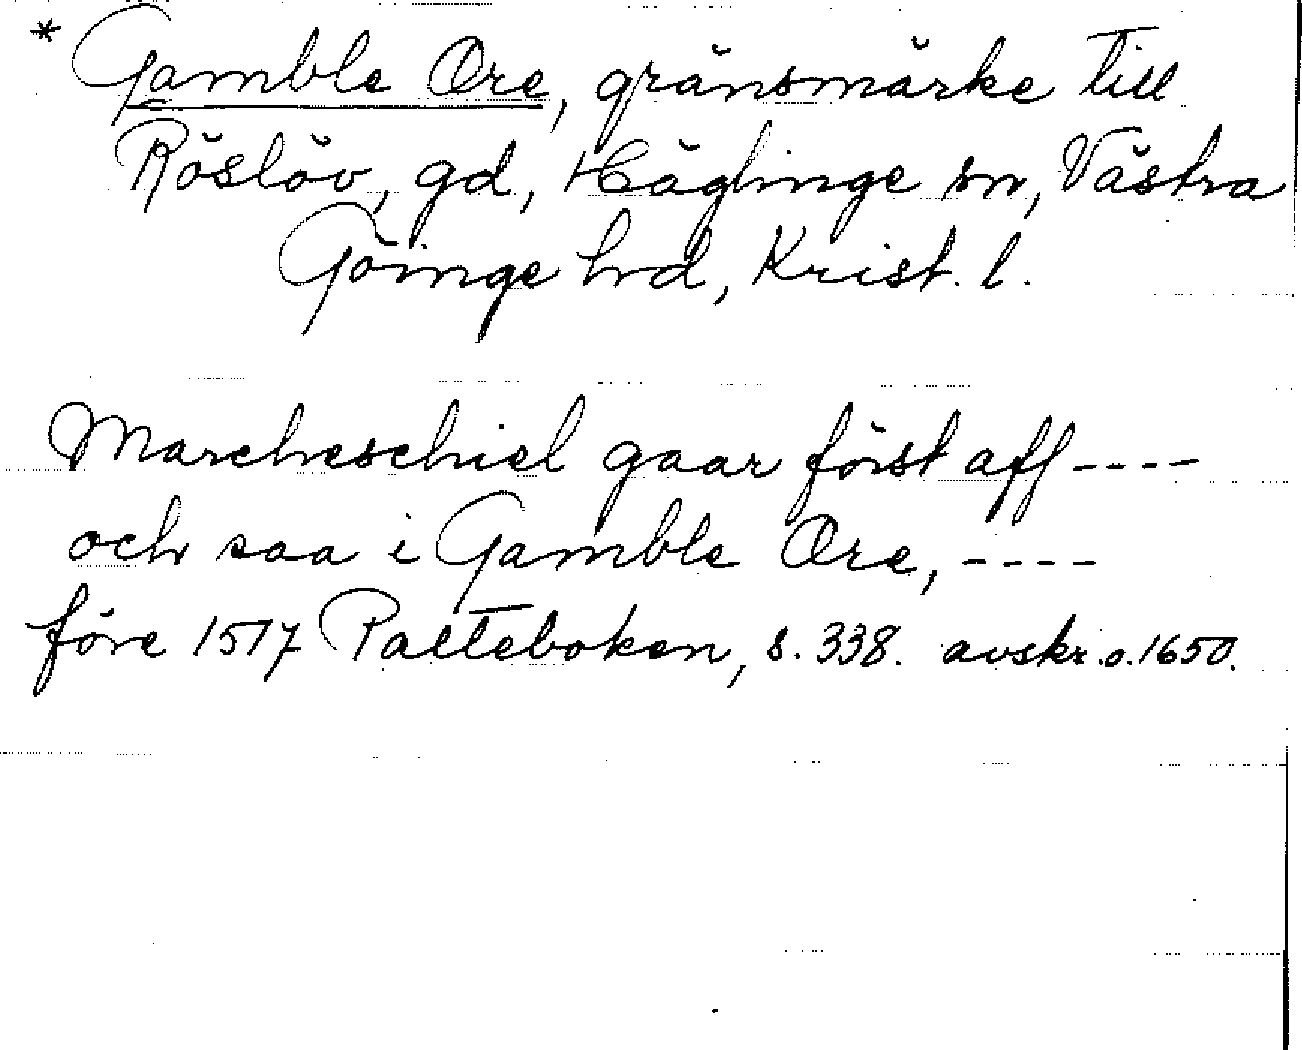 * Gamble Ore, gränsmärke till
Röslöv, gd, Häglinge sn, Västra
Göinge hrd, Krist. l.
Marcheschiel gaar först aff ----
och saa i Gamble Ore, ----
före 1517 Palteboken, s. 338. avskr. o. 1650.